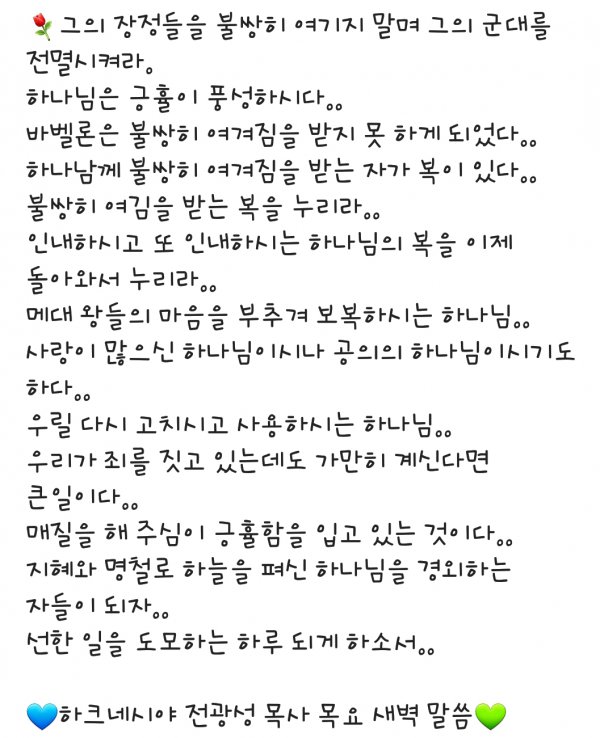 🌹그의 장정들을 불쌍히 여기지 말며 그의 군대를
전멸시켜라。
하나님은 긍휼이 풍성하시다。。
바벨론은 불쌍히 여겨짐을 받지 못 하게 되었다。。
하나남께 불쌍히 여겨짐을 받는 자가 복이 있다。。
불쌍히 여김을 받는 복을 누리라。。
인내하시고 또 인내하시는 하나님의 복을 이제
돌아와서 누리라。。
메대 왕들의 마음을 부추겨 보복하시는 하나님。。
사랑이 많으신 하나님이시나 공의의 하나님이시기도
하다。。
우릴 다시 고치시고 사용하시는 하나님。。
우리가 죄를 짓고 있는데도 가만히 계신다면
큰일이다。。
매질을 해 주심이 긍휼함을 입고 있는 것이다。。
지혜와 명철로 하늘을 펴신 하나님을 경외하는
자들이 되자。。
선한 일을 도모하는 하루 되게 하소서。。
💙하크네시야 전광성 목사 목요 새벽 말씀💚